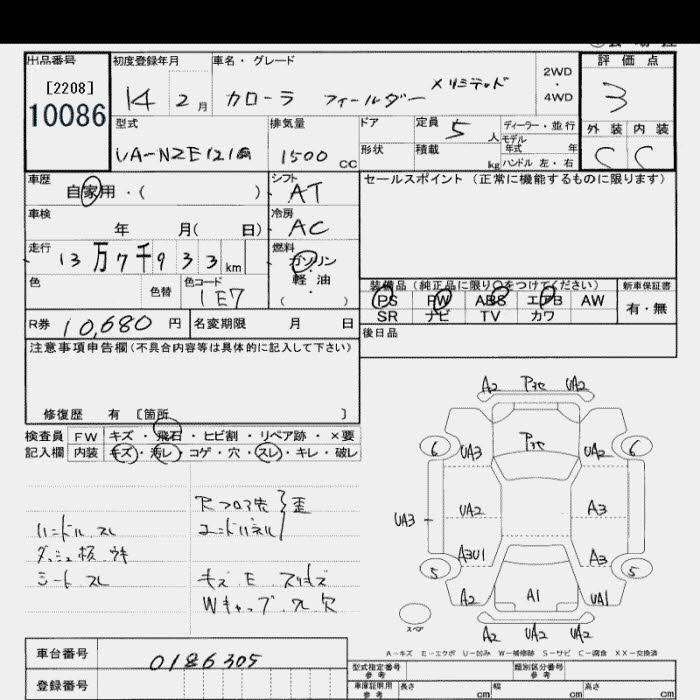 出品番号
初度登録年月
車名・グレード
評価点
[2208]
10086
14 2月
カローラ フィールダー
Xリミテッド
2WD
・
4WD
3
型式
排気量
ドア
定員 5 人
ディーラー・並行
モデル
年式 年
外装 内装
形状
積載 kg
ハンドル 左・右
1500 cc
C C
車歴
自家用・( )
シフト
AT
セールスポイント (正常に機能するものに限ります)
車検
年 月( 日)
冷房
AC
走行
13万7千933 km
燃料
ガソリン
・
軽油
( )
色
色替
色コード
1E7
装備品 (純正品に限り○をつけてください)
新車保証書
PS PW ABS エアB AW
SR ナビ TV カワ
有・無
R券 10,680 円
名変期限 月 日
後日品
注意事項申告欄 (不具合内容等は具体的に記入して下さい)
修復歴 有 [箇所 ]
検査員
記入欄
FW キズ・飛石・ヒビ割・リペア跡・×要
内装 キズ・汚レ・コゲ・穴・スレ・キレ・破レ
ハンドル スレ
ダッシュ板 ウキ
シート スレ
Rフロア先
エンドパネル
歪
キズ E スリキズ
Wキャップ クレ 欠
A2 UA2
6 UA3 UA2 6
UA3 UA2 A3
A3U1 A3
5 5
A2 A1 UA1
スペア
A2 UA2 A2
A-キズ E-エクボ U-凹み W-補修跡 S-サビ C-腐食 XX-交換済
車台番号
0186305
登録番号
型式指定番号
参考
類別区分番号
参考
車庫証明用
参考
長さ cm
幅 cm
高さ cm